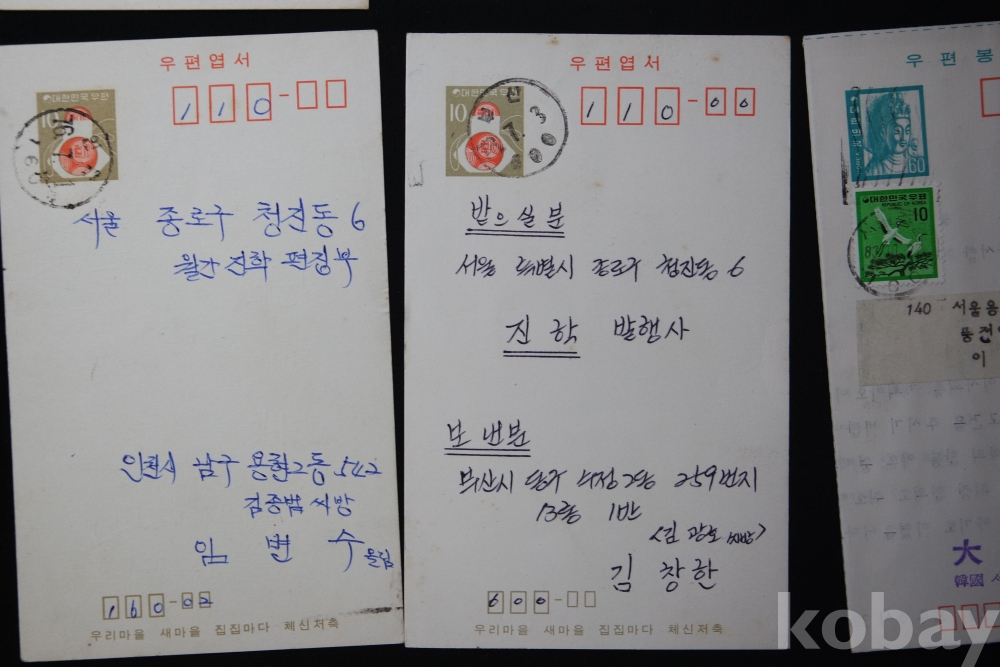 우편엽서
대한민국우편
10
110-
서울 종로구 청진동 6
월간 진학 편집부
인천시 남구 용현2동 542
김종범 씨방
임 병 수 올림
160-02
우리마을 새마을 집집마다 체신저축
우편엽서
대한민국우편
10
110-00
받으실분
서울 특별시 종로구 청진동 6
진학 발행사
보낸분
부산시 동구 수정2동 259번지
13통 1반
<김광호 씨방>
김창한
600-
우리마을 새마을 집집마다 체신저축
우편봉
60
대한민국우표
REPUBLIC OF KOREA
10
140 서울용
이
大
韓國
kobay